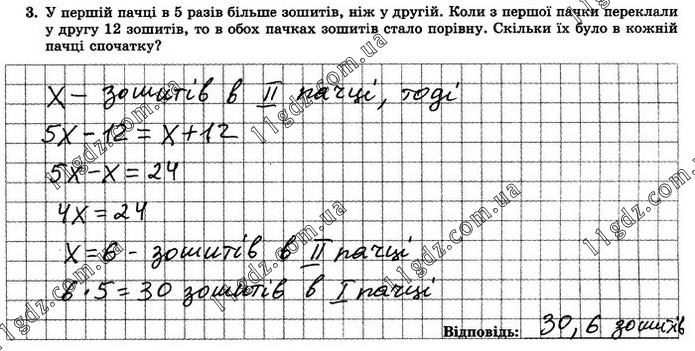 3. У першій пачці в 5 разів більше зошитів, ніж у другій. Коли з першої пачки переклали
у другу 12 зошитів, то в обох пачках зошитів стало порівну. Скільки їх було в кожній
пачці спочатку?
x – зошитів в II пачці, тоді
5x – 12 = x + 12
5x – x = 24
4x = 24
x = 6 - зошитів в II пачці
6 · 5 = 30 зошитів в I пачці
Відповідь: 30, 6 зошитів
11gdz.com.ua
11gdz.com.ua
11gdz.com.ua
11gdz.com.ua
11gdz.com.ua
11gdz.com.ua